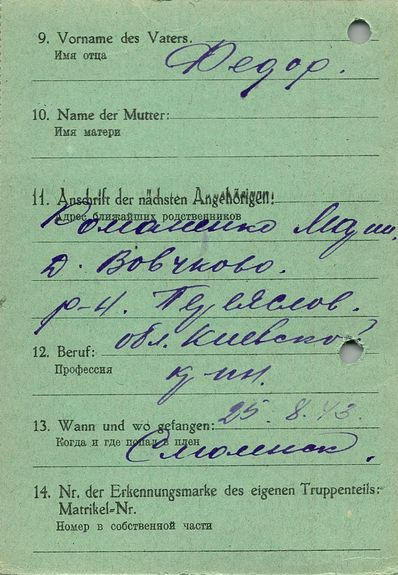 9. Vorname des Vaters.
Имя отца
Федор.
10. Name der Mutter:
Имя матери
11. Anschrift der nächsten Angehörigen:
Адрес ближайших родственников
Романенко
д. Вовчково.
р-н. Переяслов.
обл. Киевской
12. Beruf:
Профессия
13. Wann und wo gefangen: 25. 8. 43.
Когда и где попал в плен
Смоленск.
14. Nr. der Erkennungsmarke des eigenen Truppenteils:
Matrikel-Nr.
Номер в собственной части